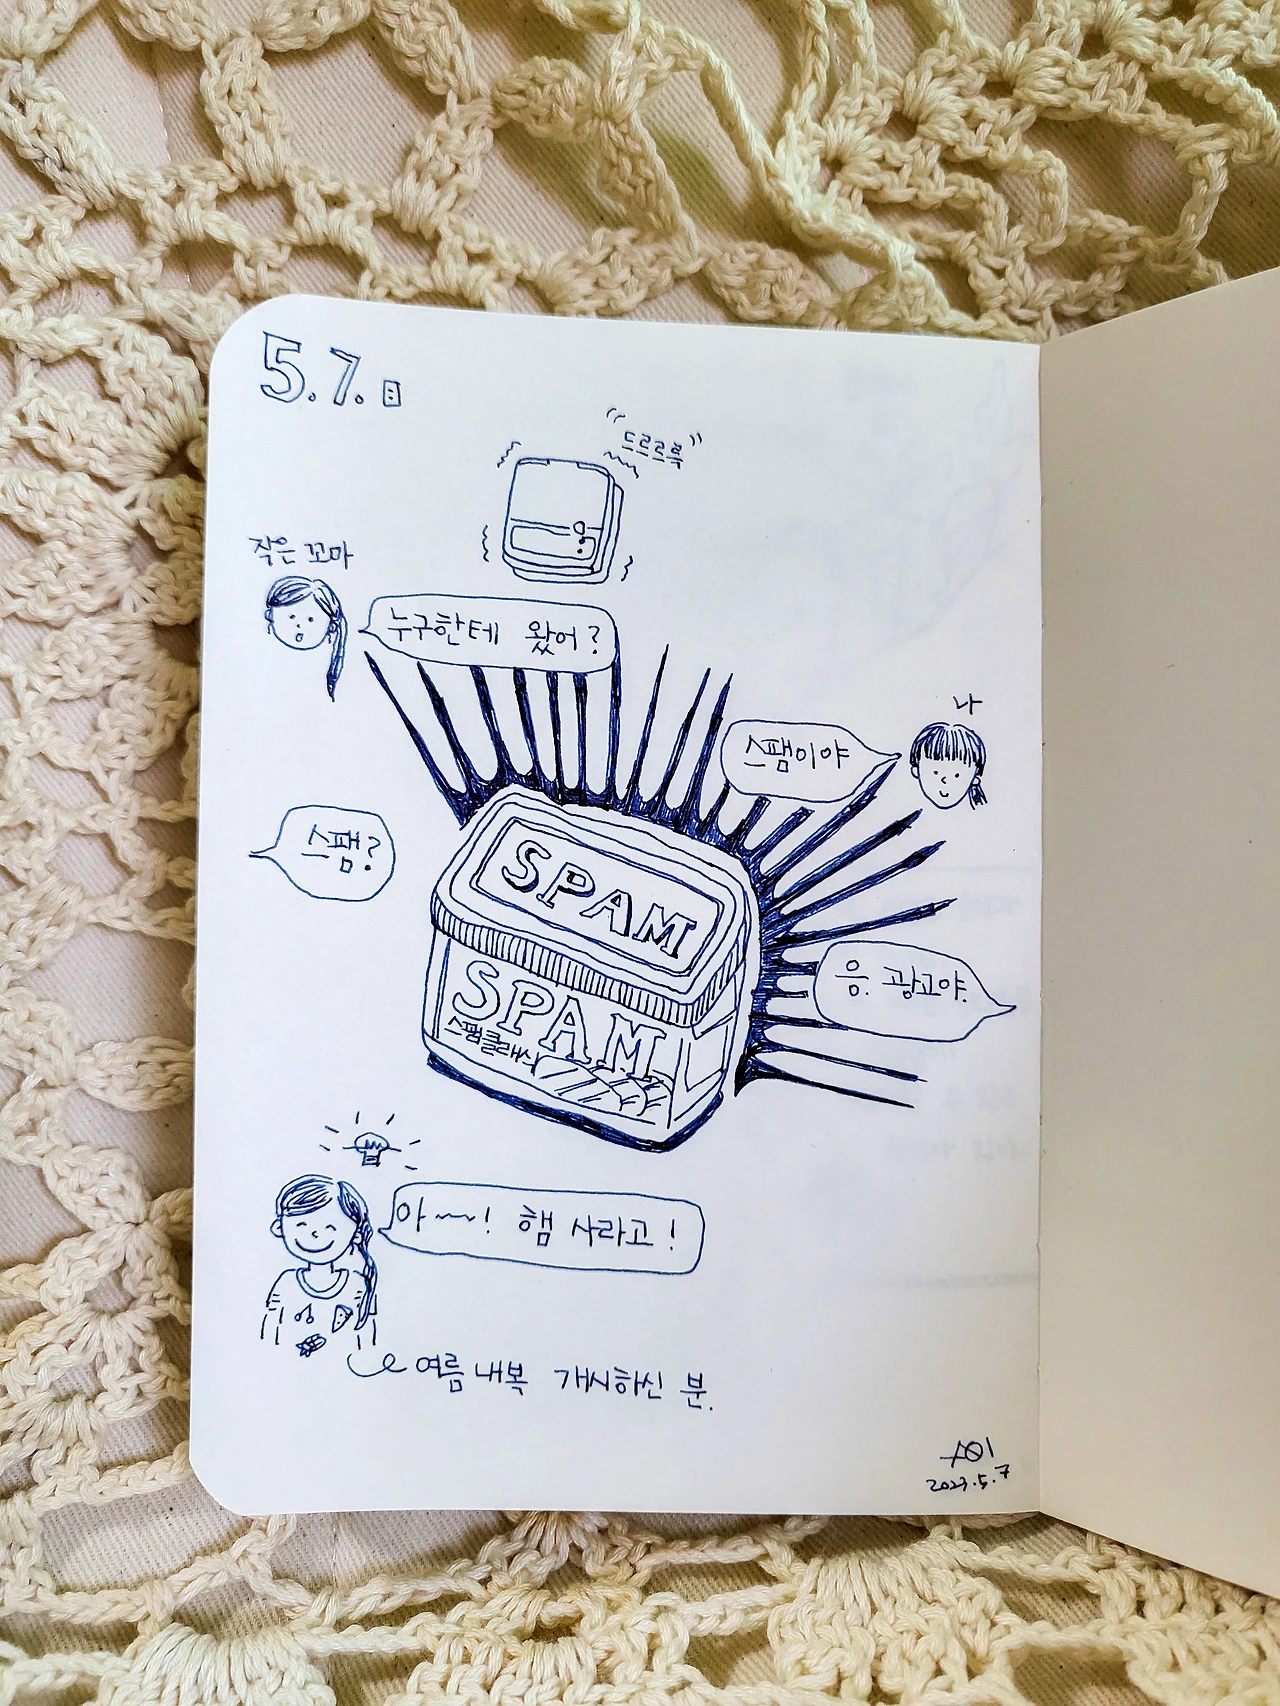 5.7.日
"드르르륵"
작은 꼬마
누구한테 왔어?
나
스팸이야
스팸?
SPAM
SPAM
스팸클래식
응. 광고야.
아~~! 햄 사라고!
여름 내복 개시하신 분.
2023.5.7